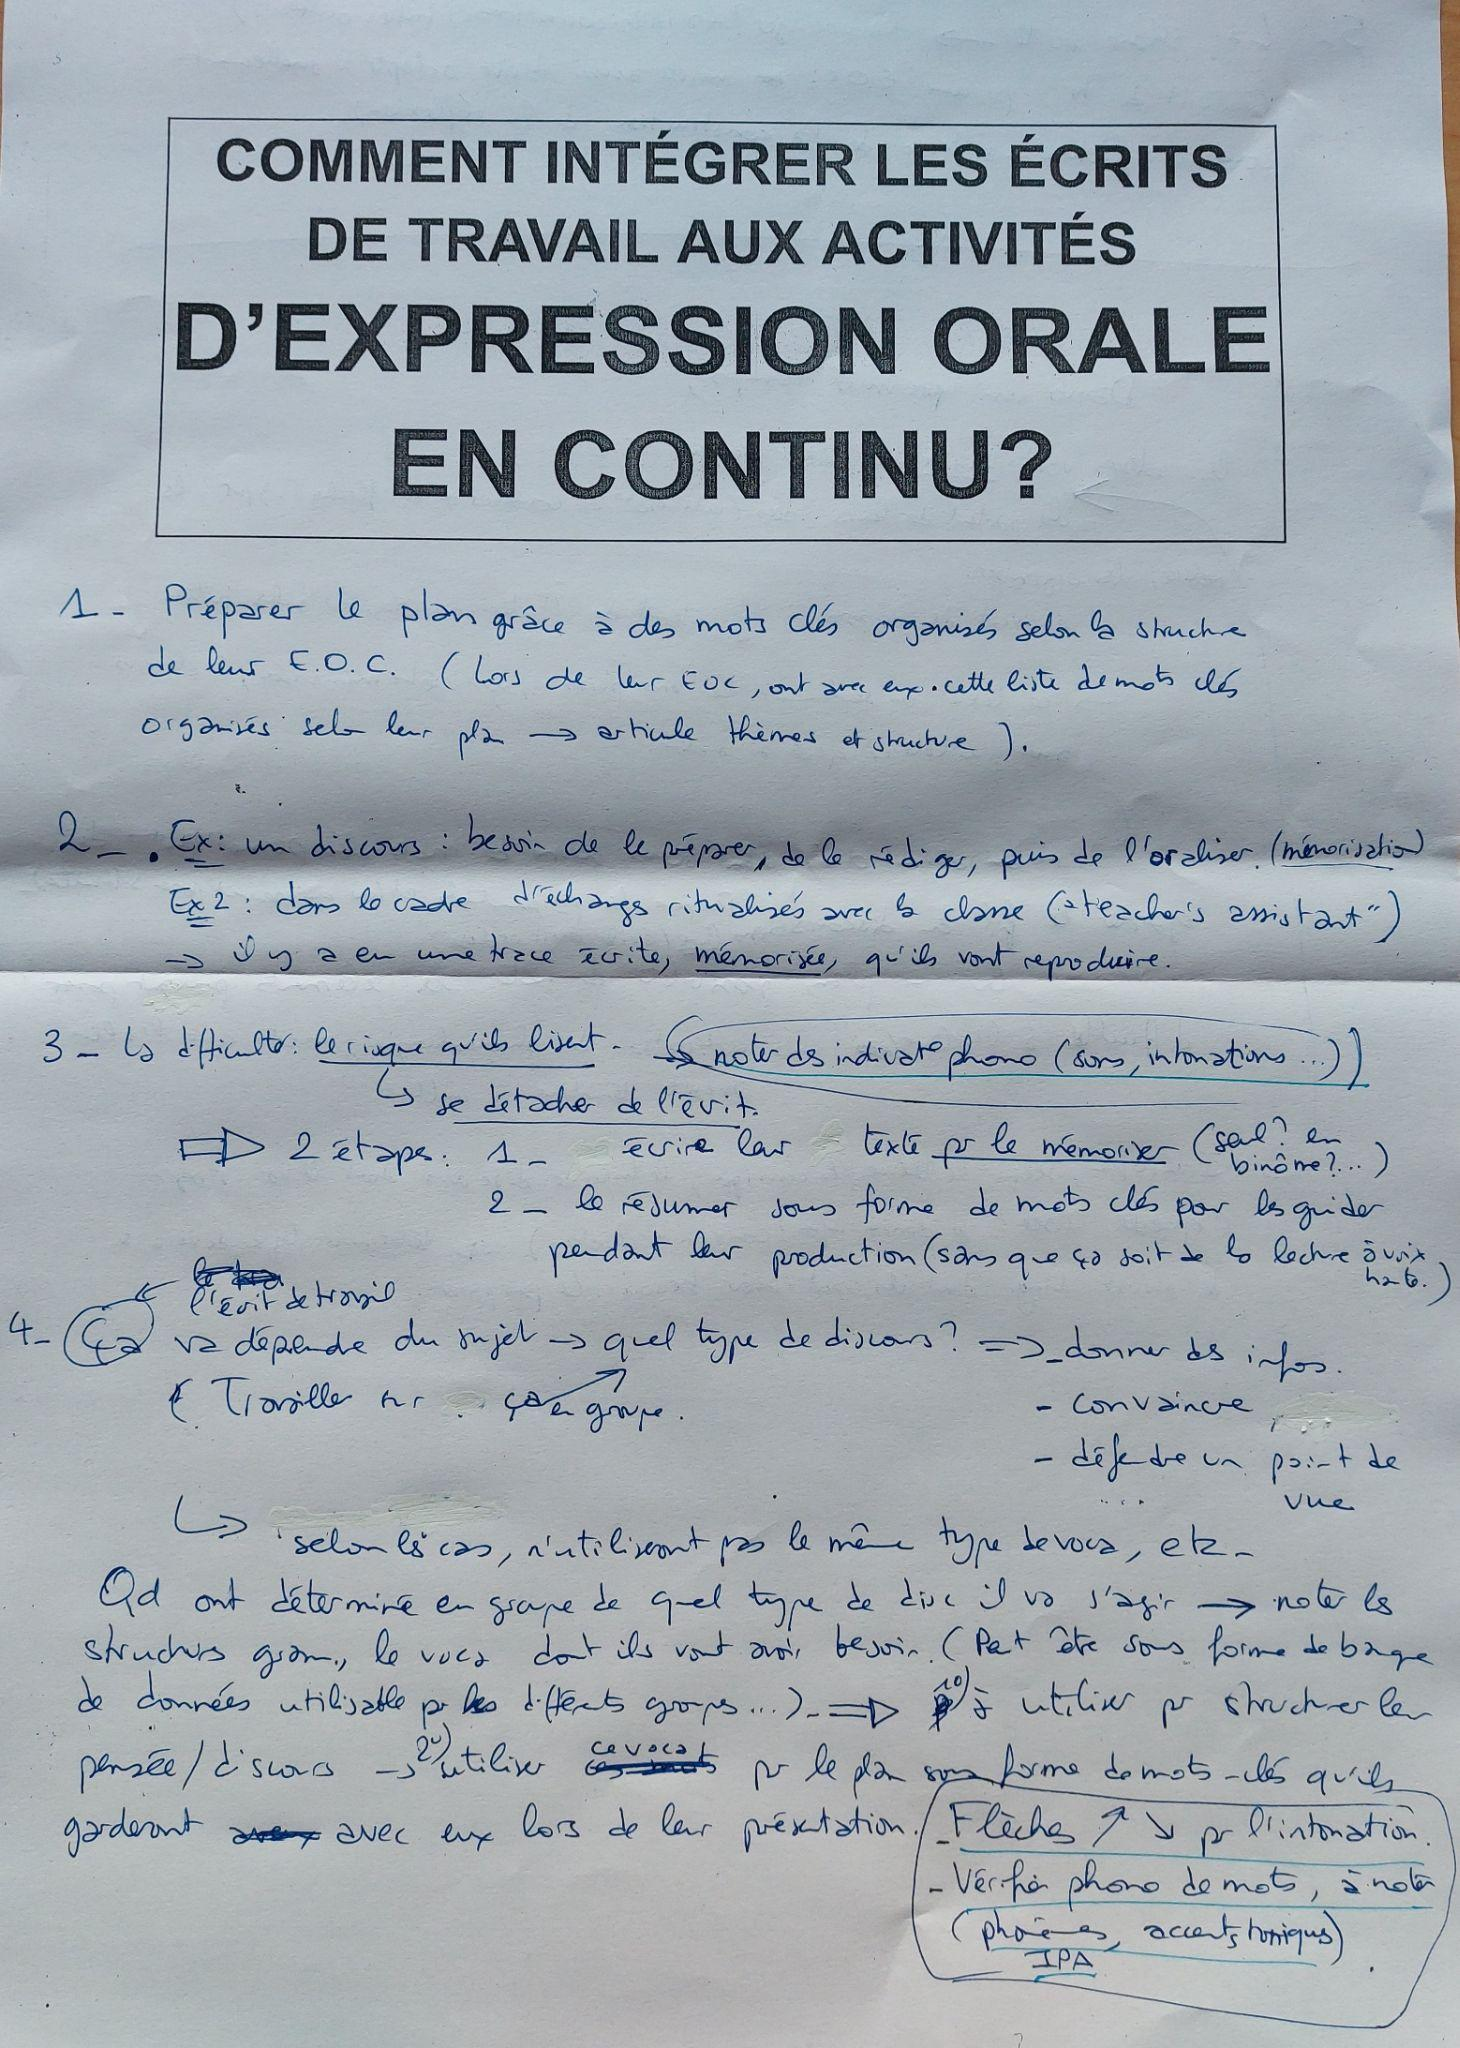 COMMENT INTÉGRER LES ÉCRITS
DE TRAVAIL AUX ACTIVITÉS
D'EXPRESSION ORALE
EN CONTINU?
1 - Préparer le plan grâce à des mots clés organisés selon la structure
de leur E.O.C. (Lors de leur EOC, ont avec eux cette liste de mots clés
organisés selon leur plan → articule thèmes et structure ).
2 - . Ex: un discours : besoin de le préparer, de le rédiger, puis de l'oraliser. (mémorisation)
Ex 2 : dans le cadre d'échanges ritualisés avec la classe ("teacher's assistant")
→ il y a eu une trace écrite, mémorisée, qu'ils vont reproduire.
3 - La difficulté: le risque qu'ils lisent. → (noter des indicat° phono (sons, intonations ...))
↳ se détacher de l'écrit.
⇨ 2 étapes: 1 - écrire leur texte pr le mémoriser (seul? en
binôme?...)
2 - le résumer sous forme de mots clés pour les guider
pendant leur production (sans que ça soit de la lecture à voix
haute.)
l'écrit de travail
4 - Ça va dépendre du sujet → quel type de discours? ⇒ - donner des infos.
( Travailler sur ça en groupe.
- convaincre
- défendre un point de
vue
...
↳ selon les cas, n'utiliseront pas le même type de voca, etc -
Qd ont déterminé en groupe de quel type de disc il va s'agir → noter les
structures gram., le voca dont ils vont avoir besoin. (Peut être sous forme de banque
de données utilisable pr les différents groupes ...). ⇒ 1°) à utiliser pr structurer leur
pensée/discours → 2°) utiliser ce voca pr le plan sous forme de mots-clés qu'ils
garderont avec eux lors de leur présentation.
- Flèches ↗ ↘ pr l'intonation.
- Vérifier phono de mots, à noter
(phonèmes, accents toniques)
IPA